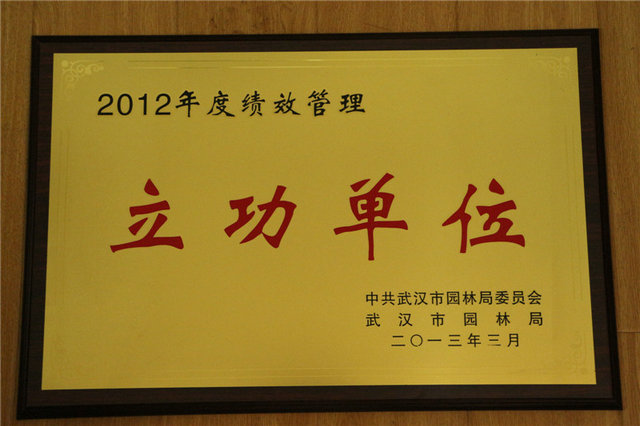 2012年度绩效管理
立功单位
中共武汉市园林局委员会
武汉市园林局
二〇一三年三月